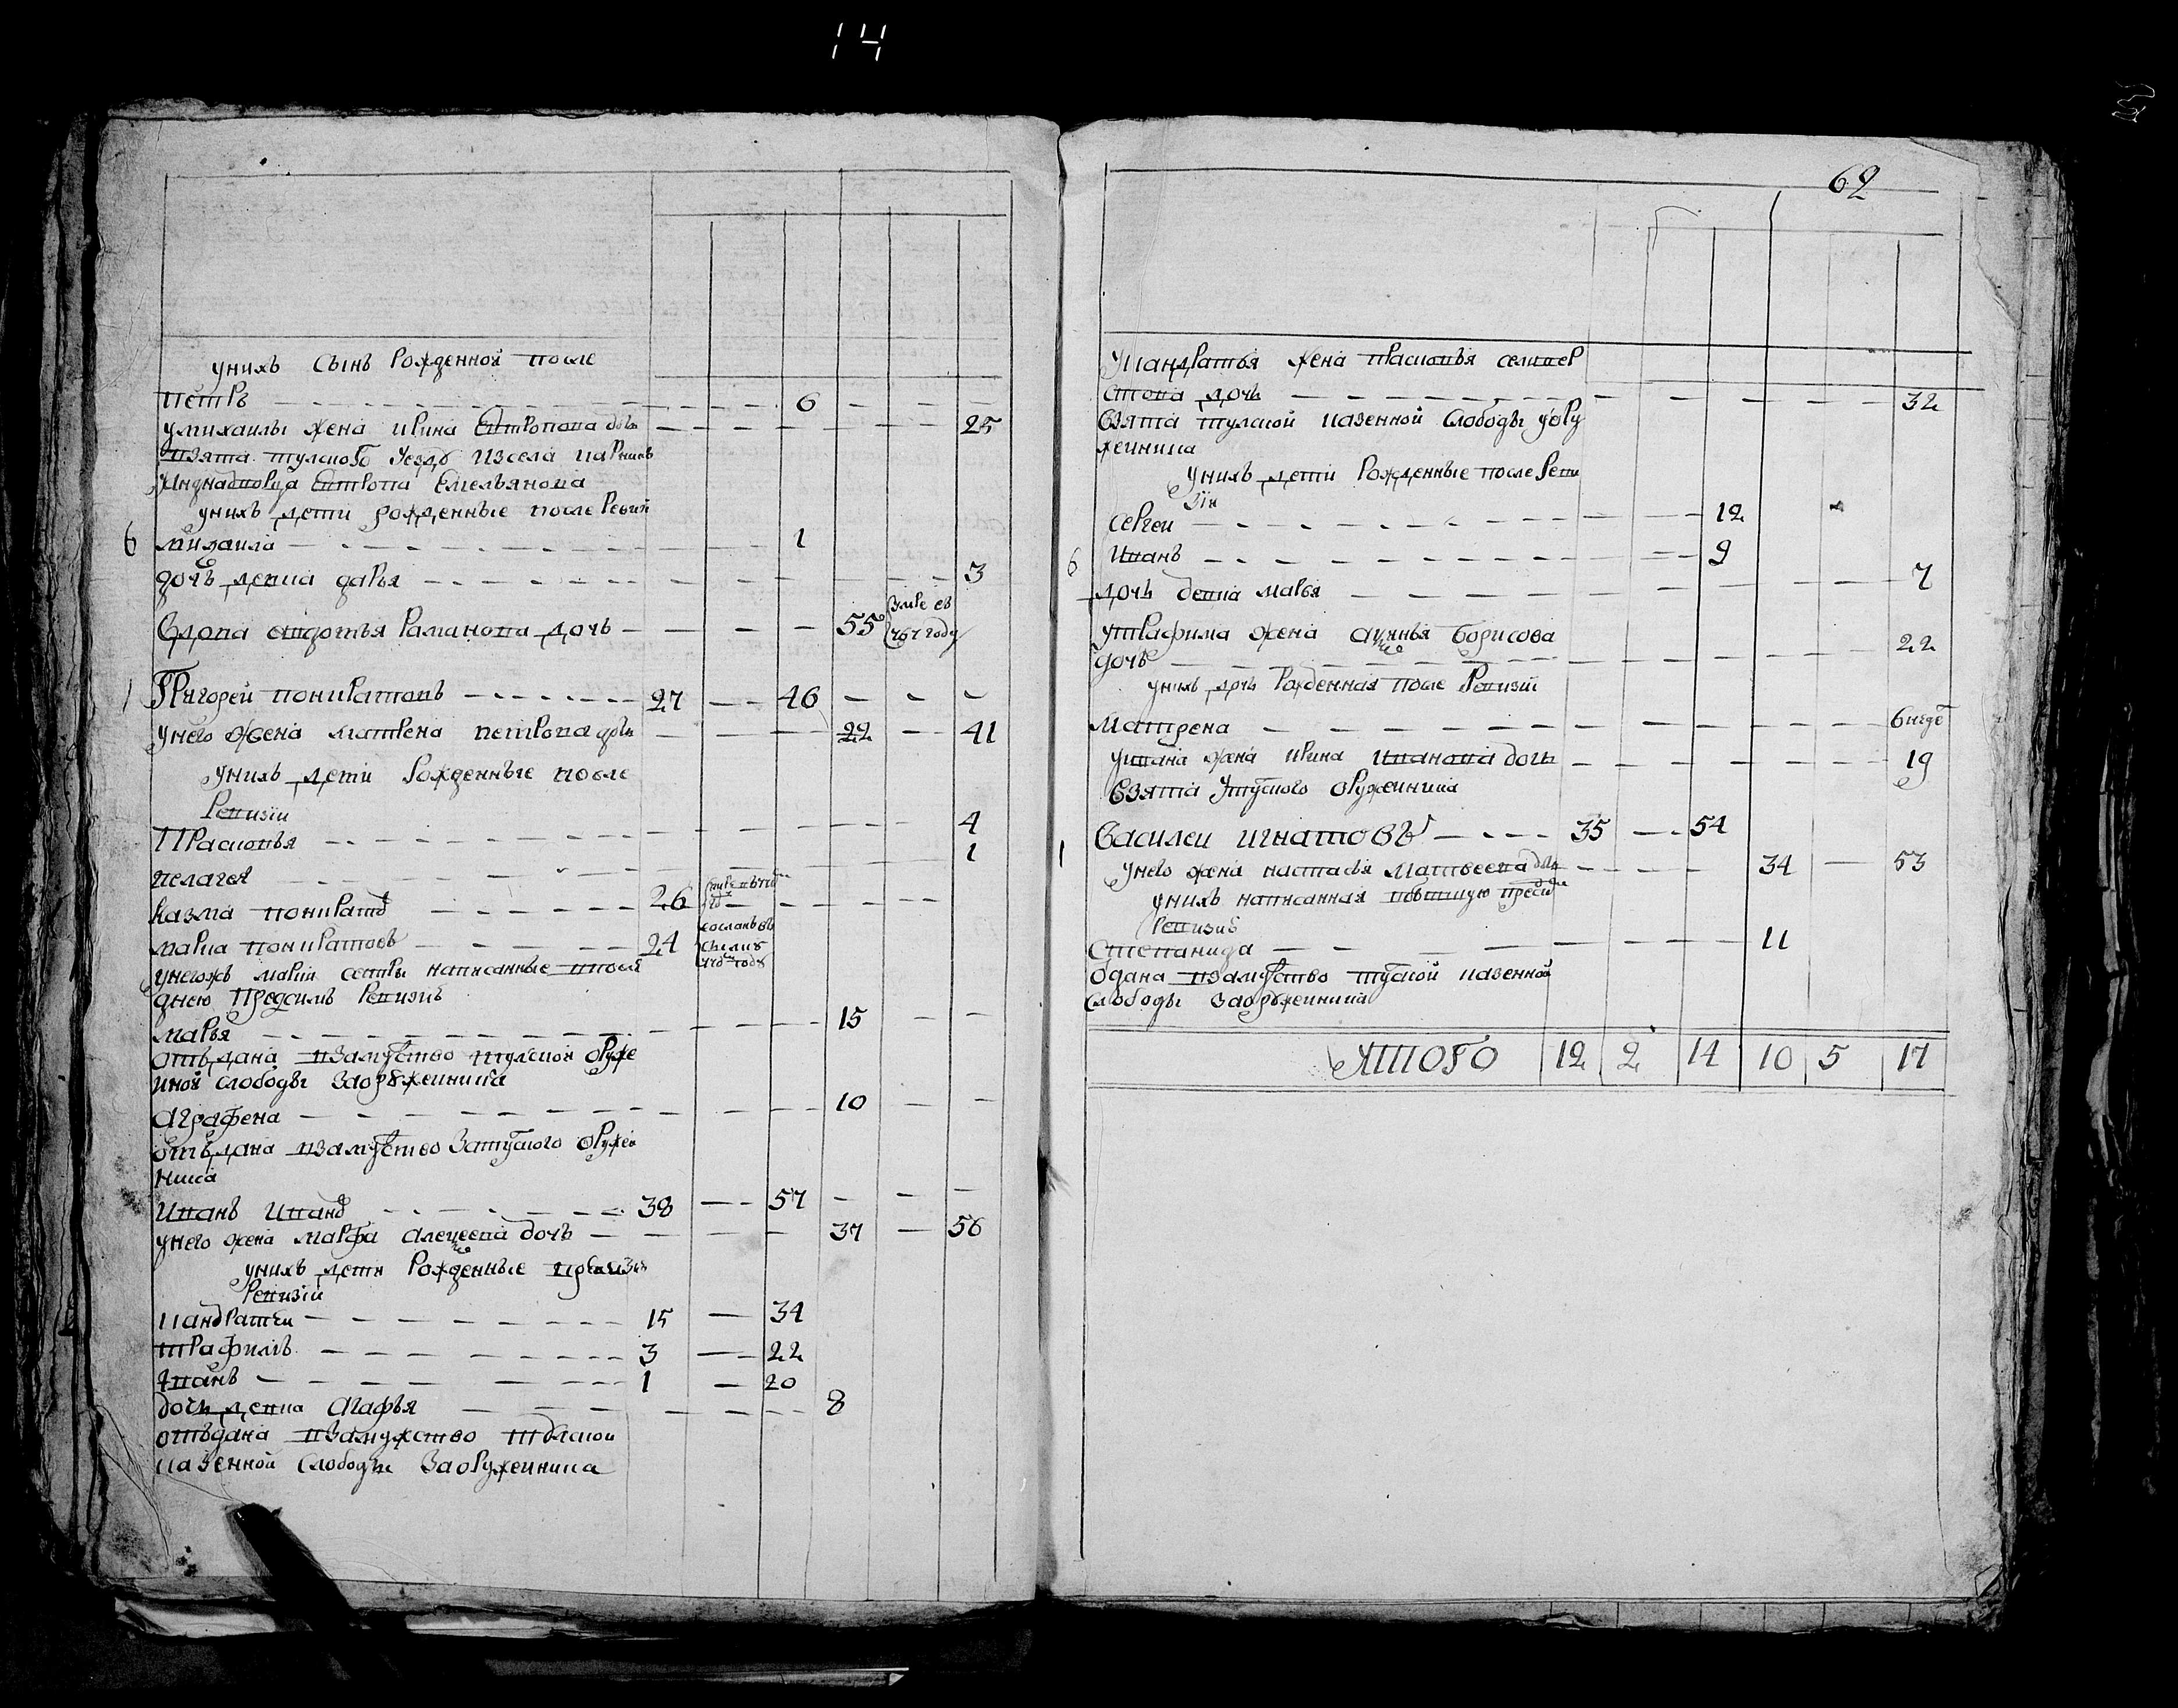 14
унихъ сынъ рожденной после
петръ — 6
умихаилы жена ирина евтропова дочь — 25
взята тулского уезду изсела
уиноднодворца евтропа емельянова
унихъ дети рожденные после ревизи
6 михаила — 1
дочь девка дарья — 3
вдова авдотья раманова дочь — 55 умре въ
году
1 Григорей понкратовъ — 27 — 46 — — —
унего жена матрена петрова дочь — 22 — 41
унихъ дети рожденные после
ревизии
Прасковья — 4
пелагея — 1
казма понкратов — 26
марка понкратовъ — 24 сосланъ въ
году
унегожъ марки сестры написанные впосле
днею предсимъ ревизию
марья — 15 — —
отъдана взамужство тулской оруже
иной слободы заоружейника
аграфена — 10 — —
отъдана взамуство затулского оружей
ника
иванъ иванов — 38 — 57 — — —
унего жена марфа алексеева дочь — 37 — 56
унихъ дети рожденные прежде
ревизии
кандратей — 15 — 34
трафимъ — 3 — 22
иванъ — 1 — 20
дочь девка агафья — 8
отъдана взамужство тулской
казенной слободы заоружейника
62
укандратья жена прасковья селивер
стова дочь — 32
взята тулской казенной слободы уору
жейника
унихъ дети рожденные после реви
зiи
сергеи — 12
6 иванъ — 9
дочь девка марья — 7
утрафима жена акулинья борисова
дочь — 22
унихъ дочь рожденная после ревизiи
матрена — 6 неде
уивана жена ирина иванова дочь — 19
взята утулского оружейника
1 василеи игнатовъ — 35 — 54
унего жена настасья матвеева дочь — 34 — 53
унихъ написанная повшую пред
ревизию
степанида — 11
одана взамуство тулской казенной
слободы заоружейника
Итого 12 2 14 10 5 17